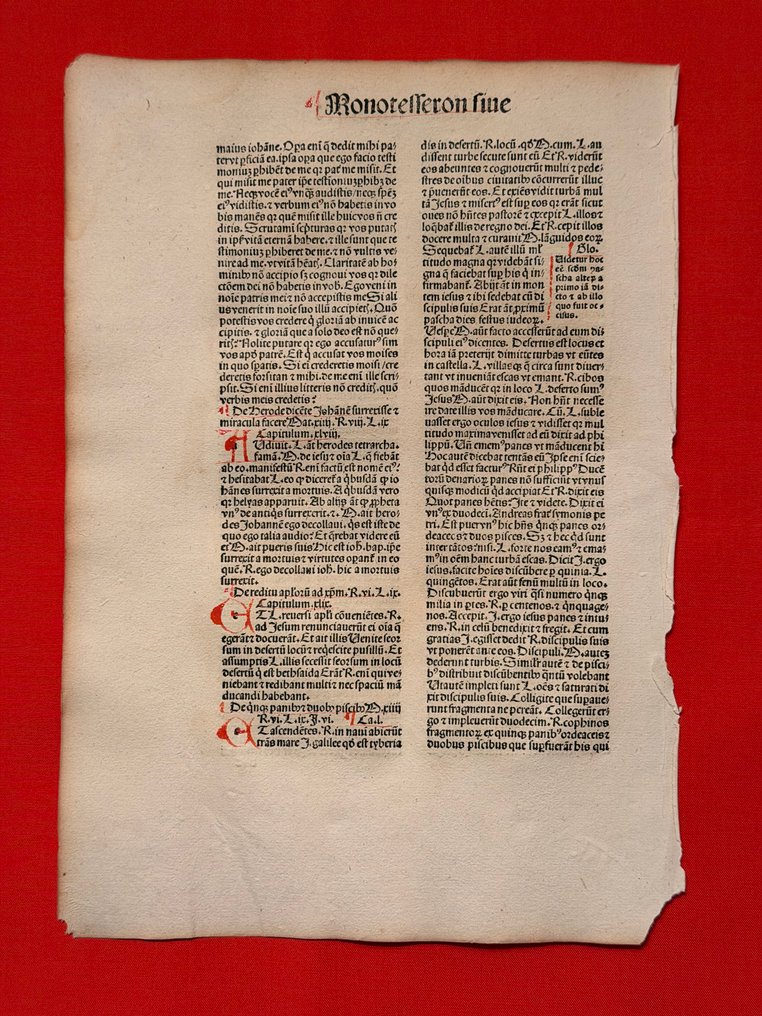 Monotesseron siue
maius iohãne. Oṗa enĩ q̃ dedit mihi pa⸗
ter vt ꝑficiã ea. ipsa opa que ego facio testi
moniuꝫ ꝑhibẽt de me qꝛ pat̃ me misit. Et
qui misit me pater ip̃e testimoniuꝫ ꝑhibꝫ de
me. Neqꝫ vocẽ eiꝰ vnq̃ꝫ audistis / neqꝫ spẽꝫ
eiꝰ vidistis. ⁊ verbum eiꝰ nõ habetis in vo
bis manẽs qꝛ quẽ misit ille huic vos ñ cre
ditis. Scrutamĩ sc̃pturas qꝛ vos putat̃
in ip̃ꝭ vitã eternã habere. ⁊ ille sunt que te
stimoniuꝫ ꝑhiberet de me. ⁊ nõ vultis ve⸗
nire ad me. vt vitã hẽat̃. Claritatẽ ab ho⸗
minibꝰ nõ accipio sꝫ cognoui vos qꝛ dile
ctõem dei nõ habetis in vob̃. Ego veni in
noĩe patris mei ⁊ nõ accepistis me Si ali
us venerit in noĩe suo illũ accipiet̃. Quõ
potestis vos credere q̃ gloriã ab inuicẽ ac
cipitis. ⁊ gloriã que a solo deo est nõ que⸗
rit̃? Nolite putare qꝛ ego accusaturꝰ sim
vos apð patrẽ. Est q̃ accusat vos moises
in quo spatis. Si eĩ crederetis moisi / cre
deretis forsitan ⁊ mihi. de me enĩ ille scri⸗
psit. Si enĩ illius litteris nõ credit̃. quõ
verbis meis credetis?
¶ De Herode dicẽte Johãnẽ surrexisse ⁊
miracula facere Mat. xiiij. R. viij. L. ix
Capitulum. xlviij.
AUdiuit. L. aũt herodes tetrarcha.
famã. M. de iesu ⁊ oĩa L. q̃ fiebãt
ab eo. manifestũ R. enĩ factũ est nomẽ eiꝰ?
⁊ hesitabat L. eo ꝙ diceret̃ a q̃busdã ꝙ io
hãnes surrexit a mortuis. A q̃busdã vero
qꝛ helyas apparuit. Ab alijs aũt ꝙ ꝓpheta
vnꝰ de antiq̃s surrexerit. ⁊. M. ait hero⸗
des Johannẽ ego decollaui. q̃s est iste de
quo ego talia audio? Et q̃rebat videre eũ
et M. ait pueris suis Hic est ioh̃. bap. ip̃e
surrexit a mortuis ⁊ virtutes opant̃ in eo
quẽ. R. ego decollaui ioh̃. hic a mortuis
surrexit.
¶ De reditu apl̃orũ ad xp̃m. R. vi. L. ix.
Capitulum. xlix.
ET L. reuersi apl̃i cõuenientes. R.
ad Jesum renunciauerũt ei oĩa q̃
egerãt ⁊ docuerãt. Et ait illis Uenite seor
sum in desertũ locũ ⁊ reqescite pusillũ. Et
assumptis L. illis secessit seorsum in locũ
desertũ q̃ est bethsaida Erãt R. enĩ qui ve⸗
niebant ⁊ redibant multi ⁊ nec spaciũ mã
ducandi habebant.
¶ De q̃nqꝫ panibꝰ ⁊ duobꝰ piscibꝰ M. xiiij
R. vi. L. ix. J. vi. ¶ Ca. l.
ET ascendẽtes. R. in nauĩ abierũt
trãs mare J. galilee qð est tyberia
dis in desertũ. R. locũ. qð M. cum. L. au
dissent turbe secute sunt eũ Et R. viderũt
eos abeuntes ⁊ cognouerũt multi ⁊ pede⸗
stres de oĩbus ciuitatibꝰ cõcurrerũt illuc
⁊ p̃uenerũt eos. Et exiẽs vidit turbã mul
tã Jesus ⁊ misertꝰ est suꝑ eos qꝛ erãt sicut
oues nõ hñtes pastorẽ ⁊ excepit L. illos ⁊
loq̃bat̃ illis de regno dei. Et R. cepit illos
docere multa ⁊ curauit M. lãguidos eoꝝ.
Sequebat̃ L. autẽ illũ ml̃
titudo magna qꝛ videbãt si⸗
gna q̃ faciebat suꝑ his q̃ in⸗
firmabant̃. Abijt ãt in mon
tem iesus ⁊ ibi sedebat cũ di
scipulis suis Erat ãt ꝓximũ
pascha dies festus iudeoꝝ.
¶ Glo.
Uidetur hoc
eẽ scðm pa⸗
scha alteꝝ a
primo iã di⸗
cto ⁊ ab illo
quo fuit oc⸗
cisus.
Uespe M. aũt facto accesserũt ad eum di⸗
scipuli eiꝰ dicentes. Desertus est locus et
hora iã preterijt dimitte turbas vt eũtes
in castella. L. villasqꝫ q̃ circa sunt diuer⸗
tant vt inueniãt escas vt emant. R. cibos
quos mãducẽt qꝛ in loco L. deserto sumꝰ
Jesus M. aũt dixit eis. Non hñt necesse
ire date illis vos mãducare. Cũ. L. suble
uasset ergo oculos iesus ⁊ vidisset qꝛ mul
titudo maxima venisset ad eũ dixit ad phi
lippũ. Uñ ememꝰ panes vt mãducent hi
Hoc autẽ dicebat tentãs eũ Jp̃e enĩ scie⸗
bat qð esset facturꝰ Rñt ei philippꝰ Ducẽ
torũ denarioꝝ panes nõ sufficiũt vt vnus
quisqꝫ modicũ qð accipiat Et R. dixit eis
Quot panes hẽtis: Jte ⁊ videte. Dixit ei
vnꝰ ex duodecĩ. Andreas frat̃ symonis pe
tri. Est puer vnꝰ hic hñs q̃nqꝫ panes or⸗
deaceos ⁊ duos pisces. Sꝫ ⁊ hec qð sunt
inter tãtos: nisi. L. forte nos eamꝰ ⁊ ema⸗
mꝰ in oẽm hanc turbã escas. Dicit J. ergo
iesus. facite hoĩes discũbere ꝑ quinia. L.
quingẽtos. Erat aũt fenũ multũ in loco.
Discubuerũt ergo viri q̃si numero q̃nqꝫ
milia in ꝑtes. R. ꝑ centenos. ⁊ q̃nquage⸗
nos. Accepit J. ergo iesus panes ⁊ intu⸗
ens. R. in celũ benedixit ⁊ fregit. Et cum
gratias J. egisset dedit R. discipulis suis
vt ponerẽt ante eos. Discipuli. M. auteꝫ
dederunt turbis. Similr̃ autẽ ⁊ de pisci⸗
bꝰ distribuit discũbentibꝰ q̃ntũ volebant
Ut autẽ impleti sunt L. oẽs ⁊ saturati di
xit discipulis suis. Colligite que supaue⸗
runt fragmenta ne pereãt. Collegerũt er⸗
go ⁊ impleuerũt duodecim. R. cophinos
fragmentoꝝ ex quinqꝫ panibꝰ ordeaceis ⁊
duobus piscibus que suꝑfuerãt his qui